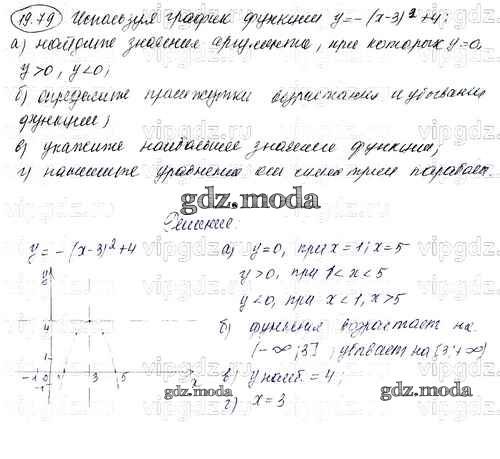 19.79 Используя график функции y=-(x-3)²+4:
а) найдите значение аргумента, при которых y=0,
y>0, y<0;
б) определите промежутки возрастания и убывания
функции;
в) укажите наибольшее значение функции;
г) напишите уравнение оси симметрии параболы.
gdz.moda
Решение:
y=-(x-3)²+4
а) y=0, при x=1; x=5
y>0, при 1<x<5
y<0, при x<1, x>5
б) функция возрастает на
(-∞;3], убывает на [3;+∞)
в) y наиб.=4;
г) x=3
y
4
1
-1 0 1 3 5 x
-1
gdz.moda
gdz.moda
vipgdz.com